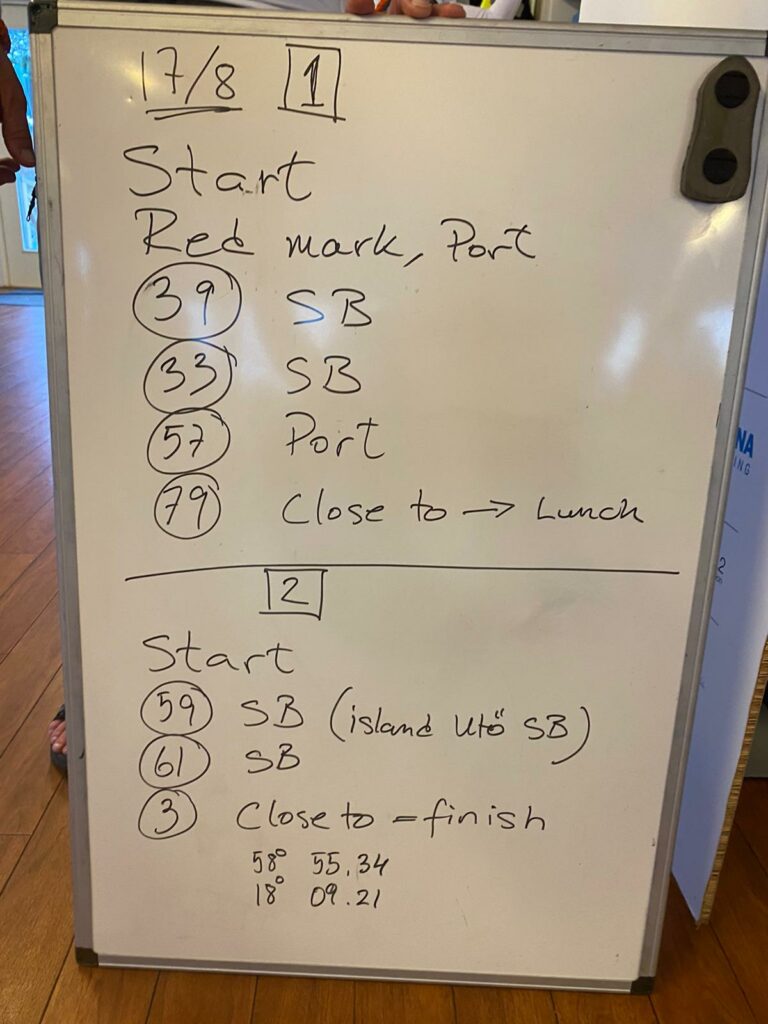 17/8 1
Start
Red mark, Port
39 SB
33 SB
57 Port
79 Close to → Lunch
2
Start
59 SB (island Utö SB)
61 SB
3 Close to - finish
58° 55.34
18° 09.21
NA
ING
2